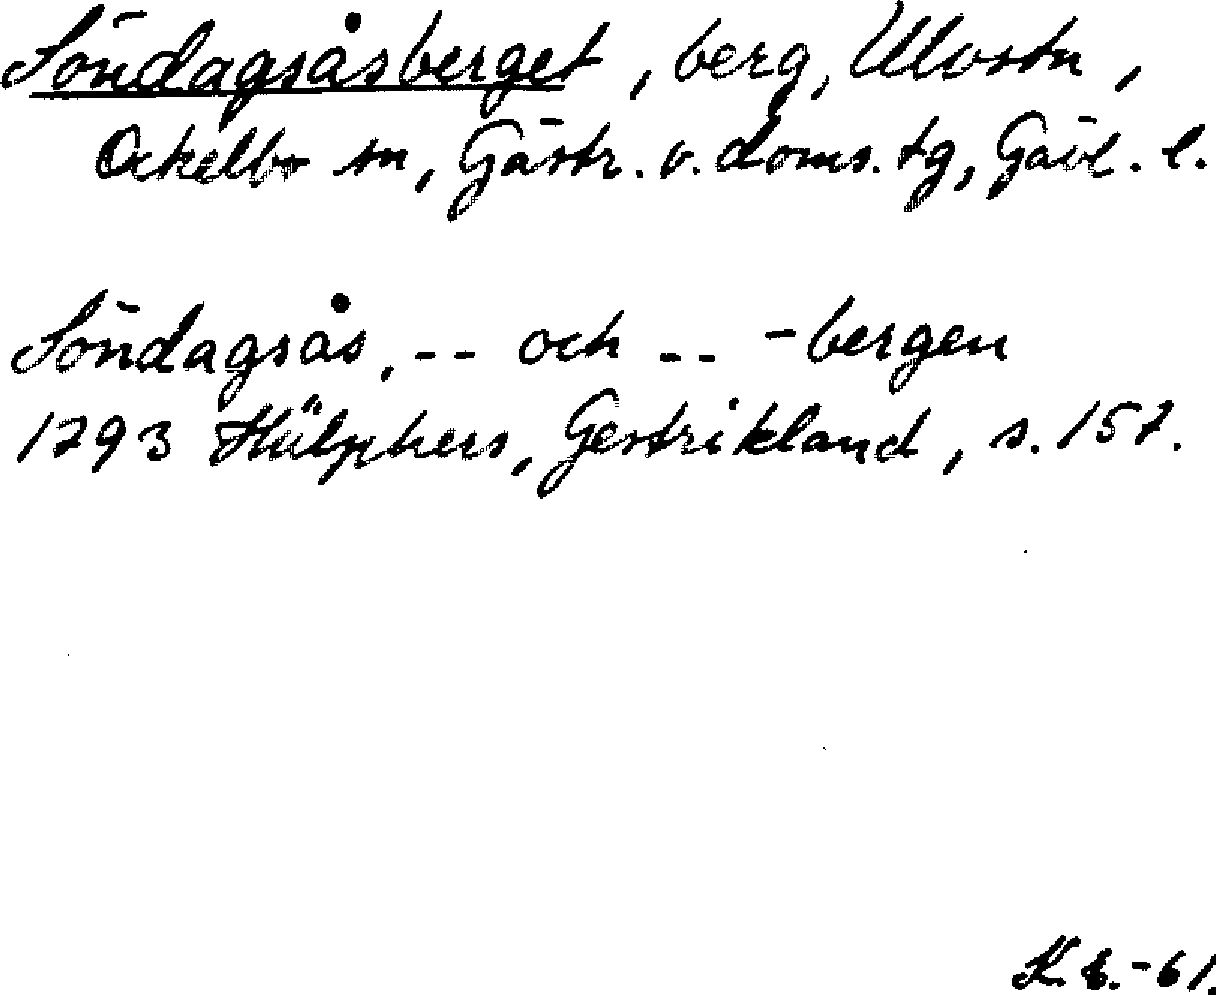 Söndagsåsberget, berg, Ulvstn,
Ockelbo sn, Gästr. v. doms. tg, Gävl. l.
Söndagsås, -- och -- -bergen
1793 Hülphers, Gestrikland, s. 157.
-61.